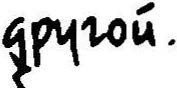 другой.